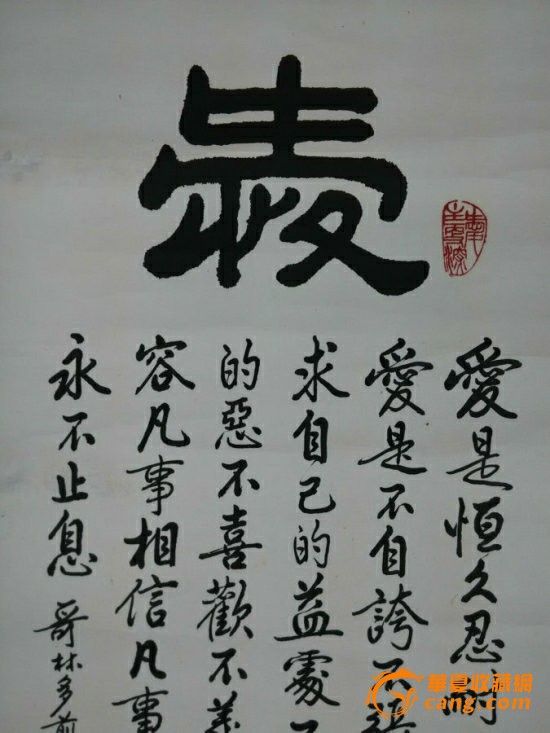 愛
愛是恒久忍耐
愛是不自誇不
求自己的益處不
的惡不喜歡不義
容凡事相信凡事
永不止息 哥林多前
華夏收藏網
cang.com